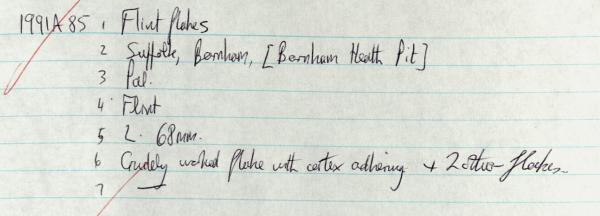 1991A85 1 Flint flakes
2 Suffolk, Barnham, [Barnham Heath Pit]
3 Pal.
4 Flint
5 L. 68mm.
6 Crudely worked flake with cortex adhering + 2 other flakes.
7